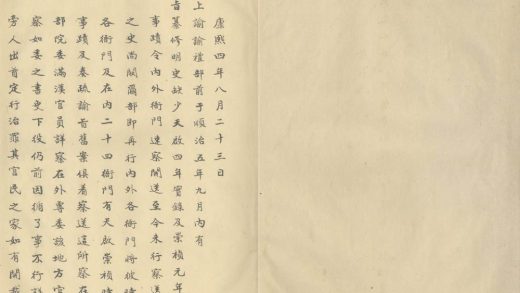 康熙四年八月二十三日
上諭諭禮部前于順治五年九月內有
旨纂修明史缺少天啟四年實錄及崇禎元年
事蹟令內外衙門速察開送至今未行察送
之史尚闕爾部即再行內外各衙門將彼時
各衙門及在內二十四衙門有天啟崇禎時
事蹟及奏疏諭旨舊案俱著察送這所察在
部院委滿漢官員詳察在外專委該地方官
察如委之書吏下役仍前因循了事不行詳
旁人出首定行治罪其官民之家如有開載